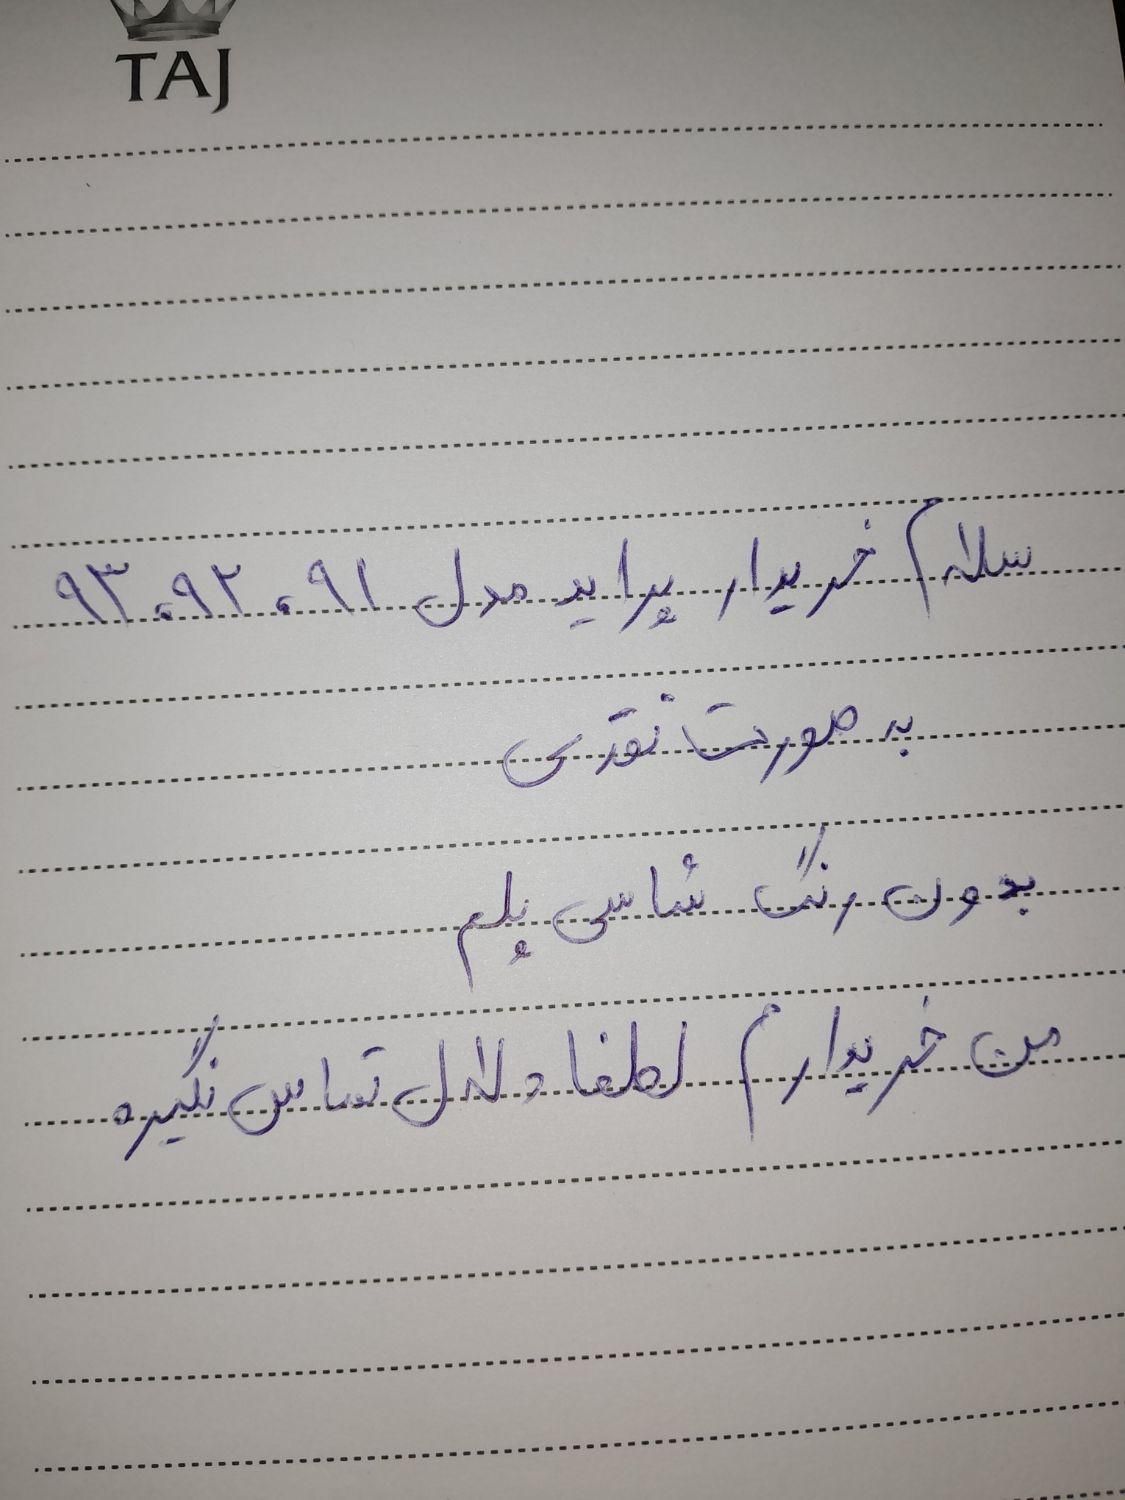 TAJ
سلام خریدار پراید مدل ۹۱، ۹۲، ۹۳
به صورت نقدی
بدون رنگ شاسی پلم
من خریدارم لطفا دلال تماس نگیره